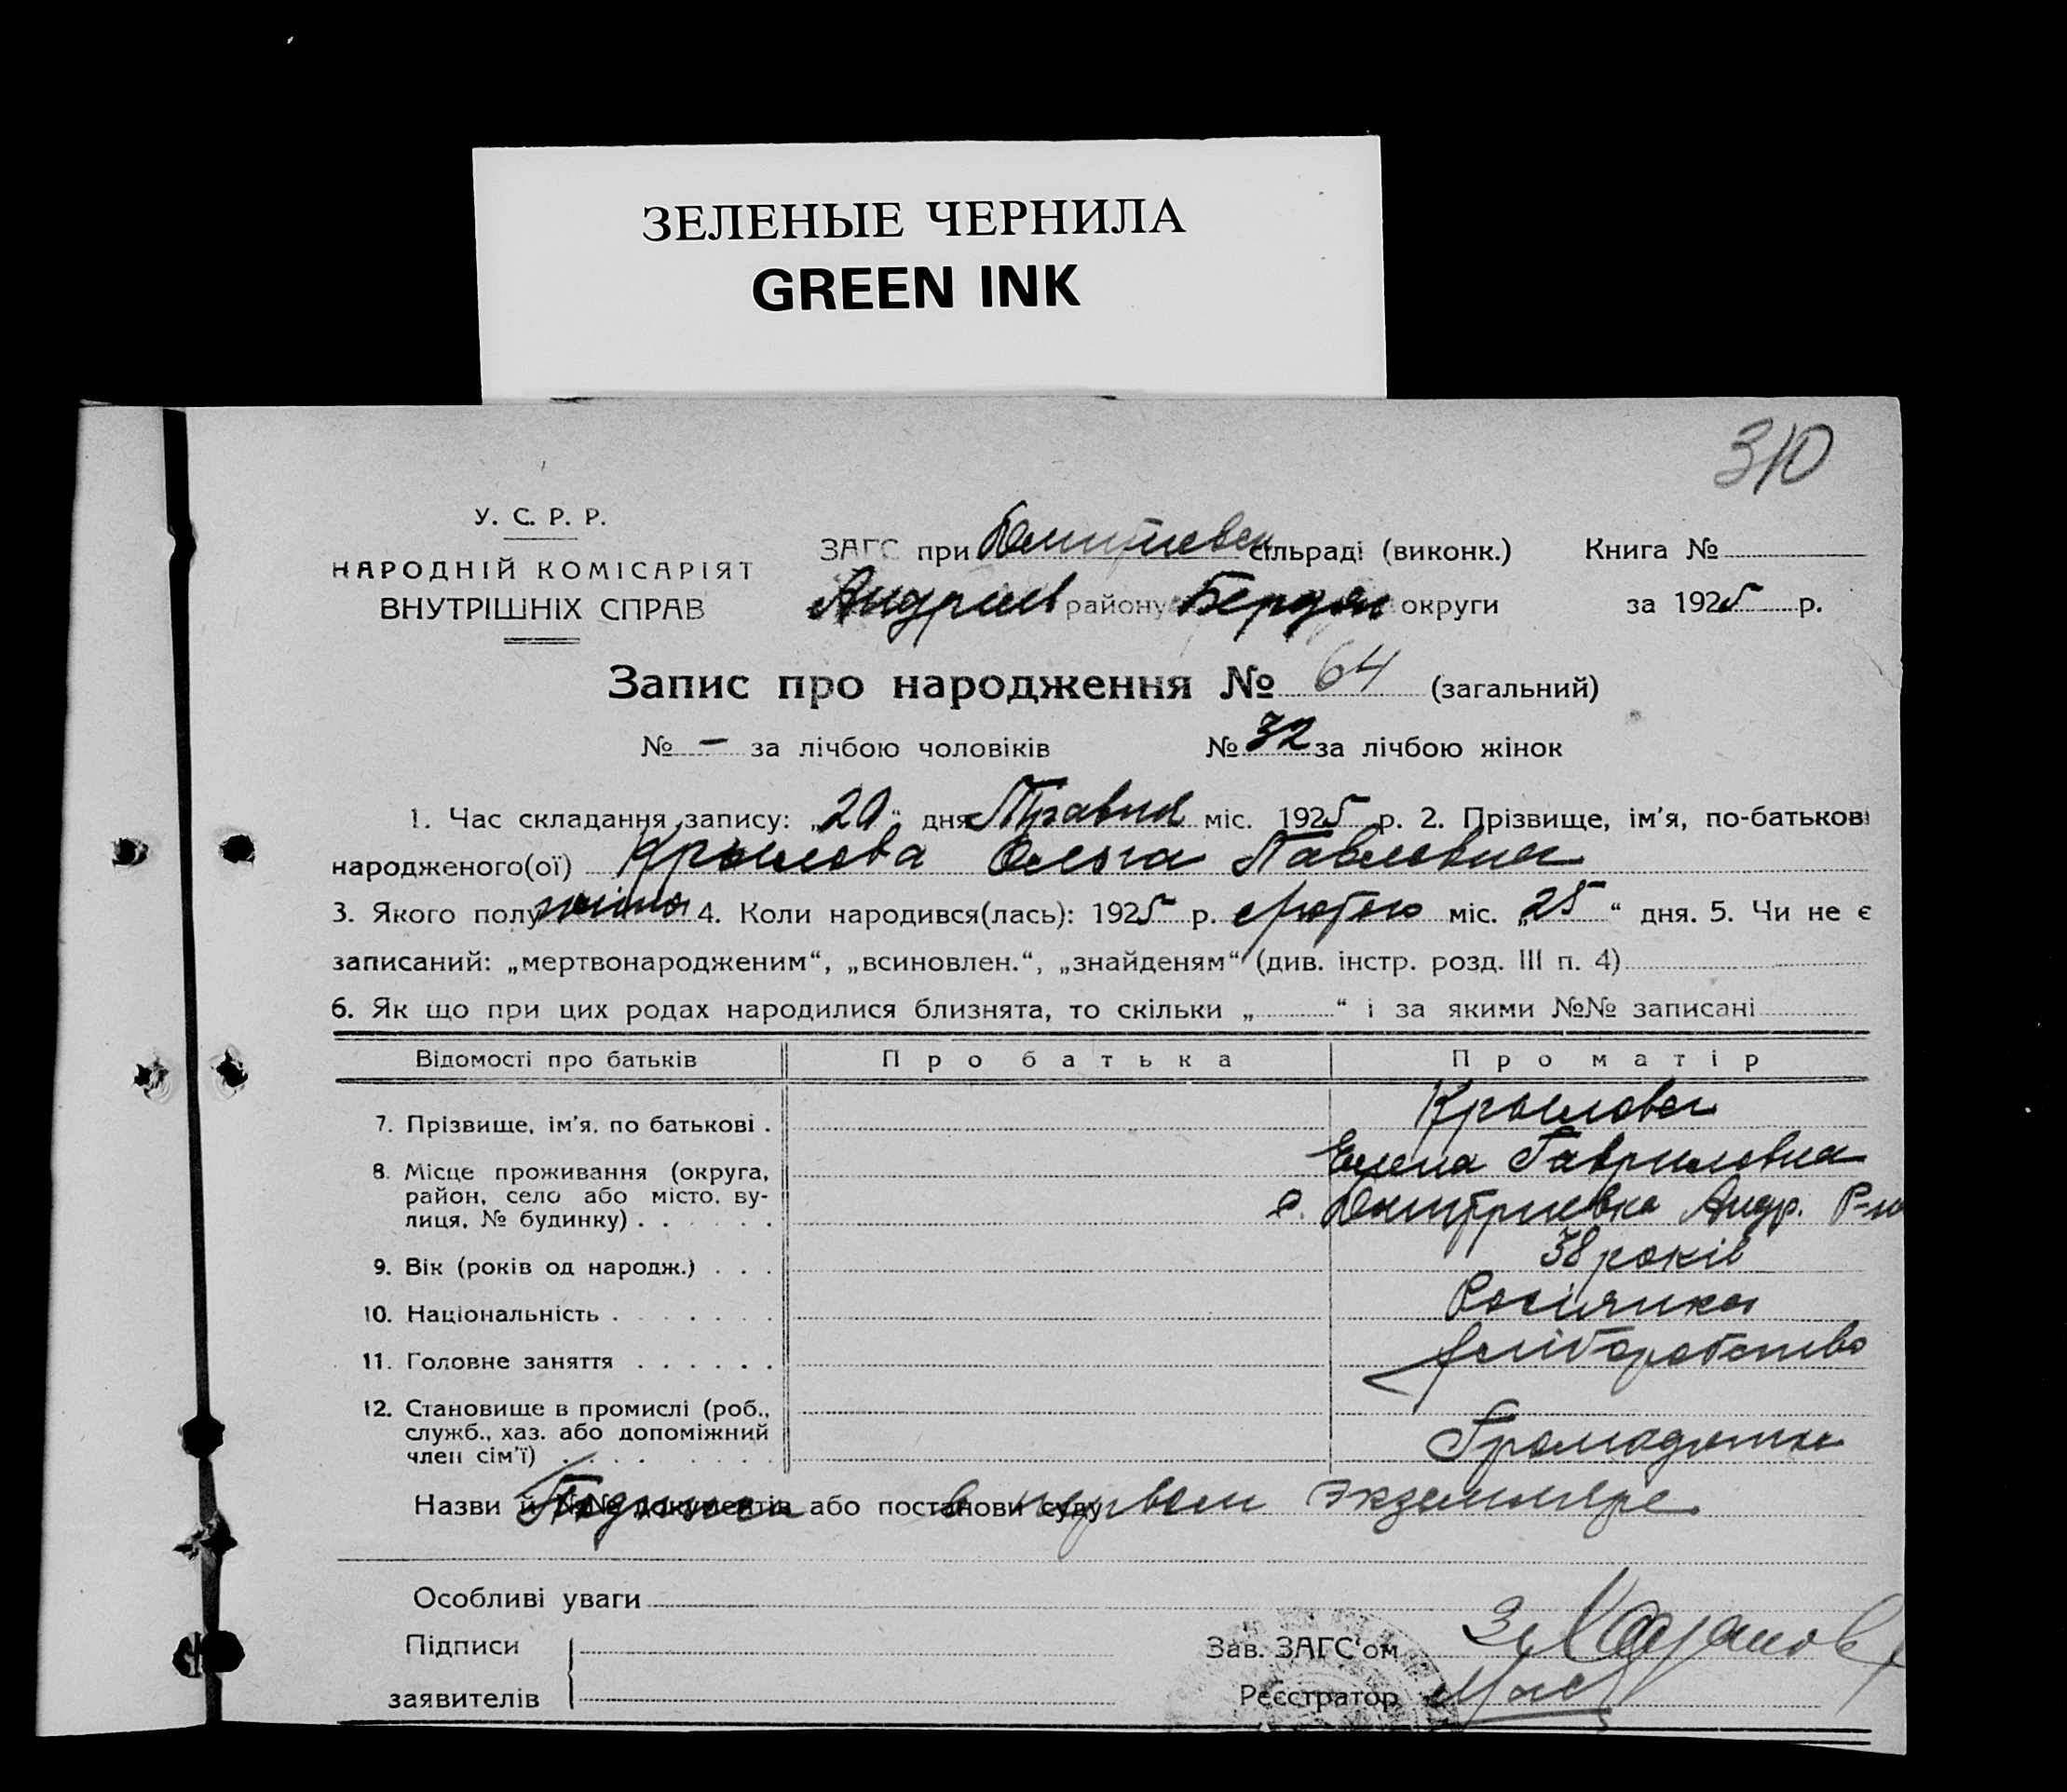 ЗЕЛЕНЫЕ ЧЕРНИЛА
GREEN INK
310
У. С. Р. Р.
НАРОДНІЙ КОМІСАРІЯТ
ВНУТРІШНІХ СПРАВ
ЗАГС при сільраді (виконк.) Книга №
Андріев району Бердян округи за 1925 р.
Запис про народження № 64 (загальний)
№ — за лічбою чоловіків № 32 за лічбою жінок
1. Час складання запису: „20“ дня Травня міс. 1925 р. 2. Прізвище, ім'я, по-батькові
народженого(ої) Крылова Ольга Павловна
3. Якого полу жіноч 4. Коли народився(лась): 1925 р. лютого міс. „25“ дня. 5. Чи не є
записаний: „мертвонародженим“, „всиновлен.“, „знайденям“ (див. інстр. розд. III п. 4)
6. Як що при цих родах народилися близнята, то скільки „ “ і за якими №№ записані
Відомості про батьків Про батька Про матір
7. Прізвище, ім'я, по батькові . Крылова
Елена Гавриловна
8. Місце проживання (округа, район, село або місто, ву-
лиця, № будинку) . . . . . . с. Дмитриевка Андр. Р-ну
9. Вік (років од народж.) . . . 38 років
10. Національність . . . . . . . Росіянка
11. Головне заняття . . . . . . хліборобство
12. Становище в промислі (роб.,
служб., хаз. або допоміжний
член сім'ї) . . . . . . . . Громадянка
Назви й №№ документів або постанови суду
Подписи в первом экземпляре
Особливі уваги
Підписи
заявителів
Зав. ЗАГС'ом
Реєстратор